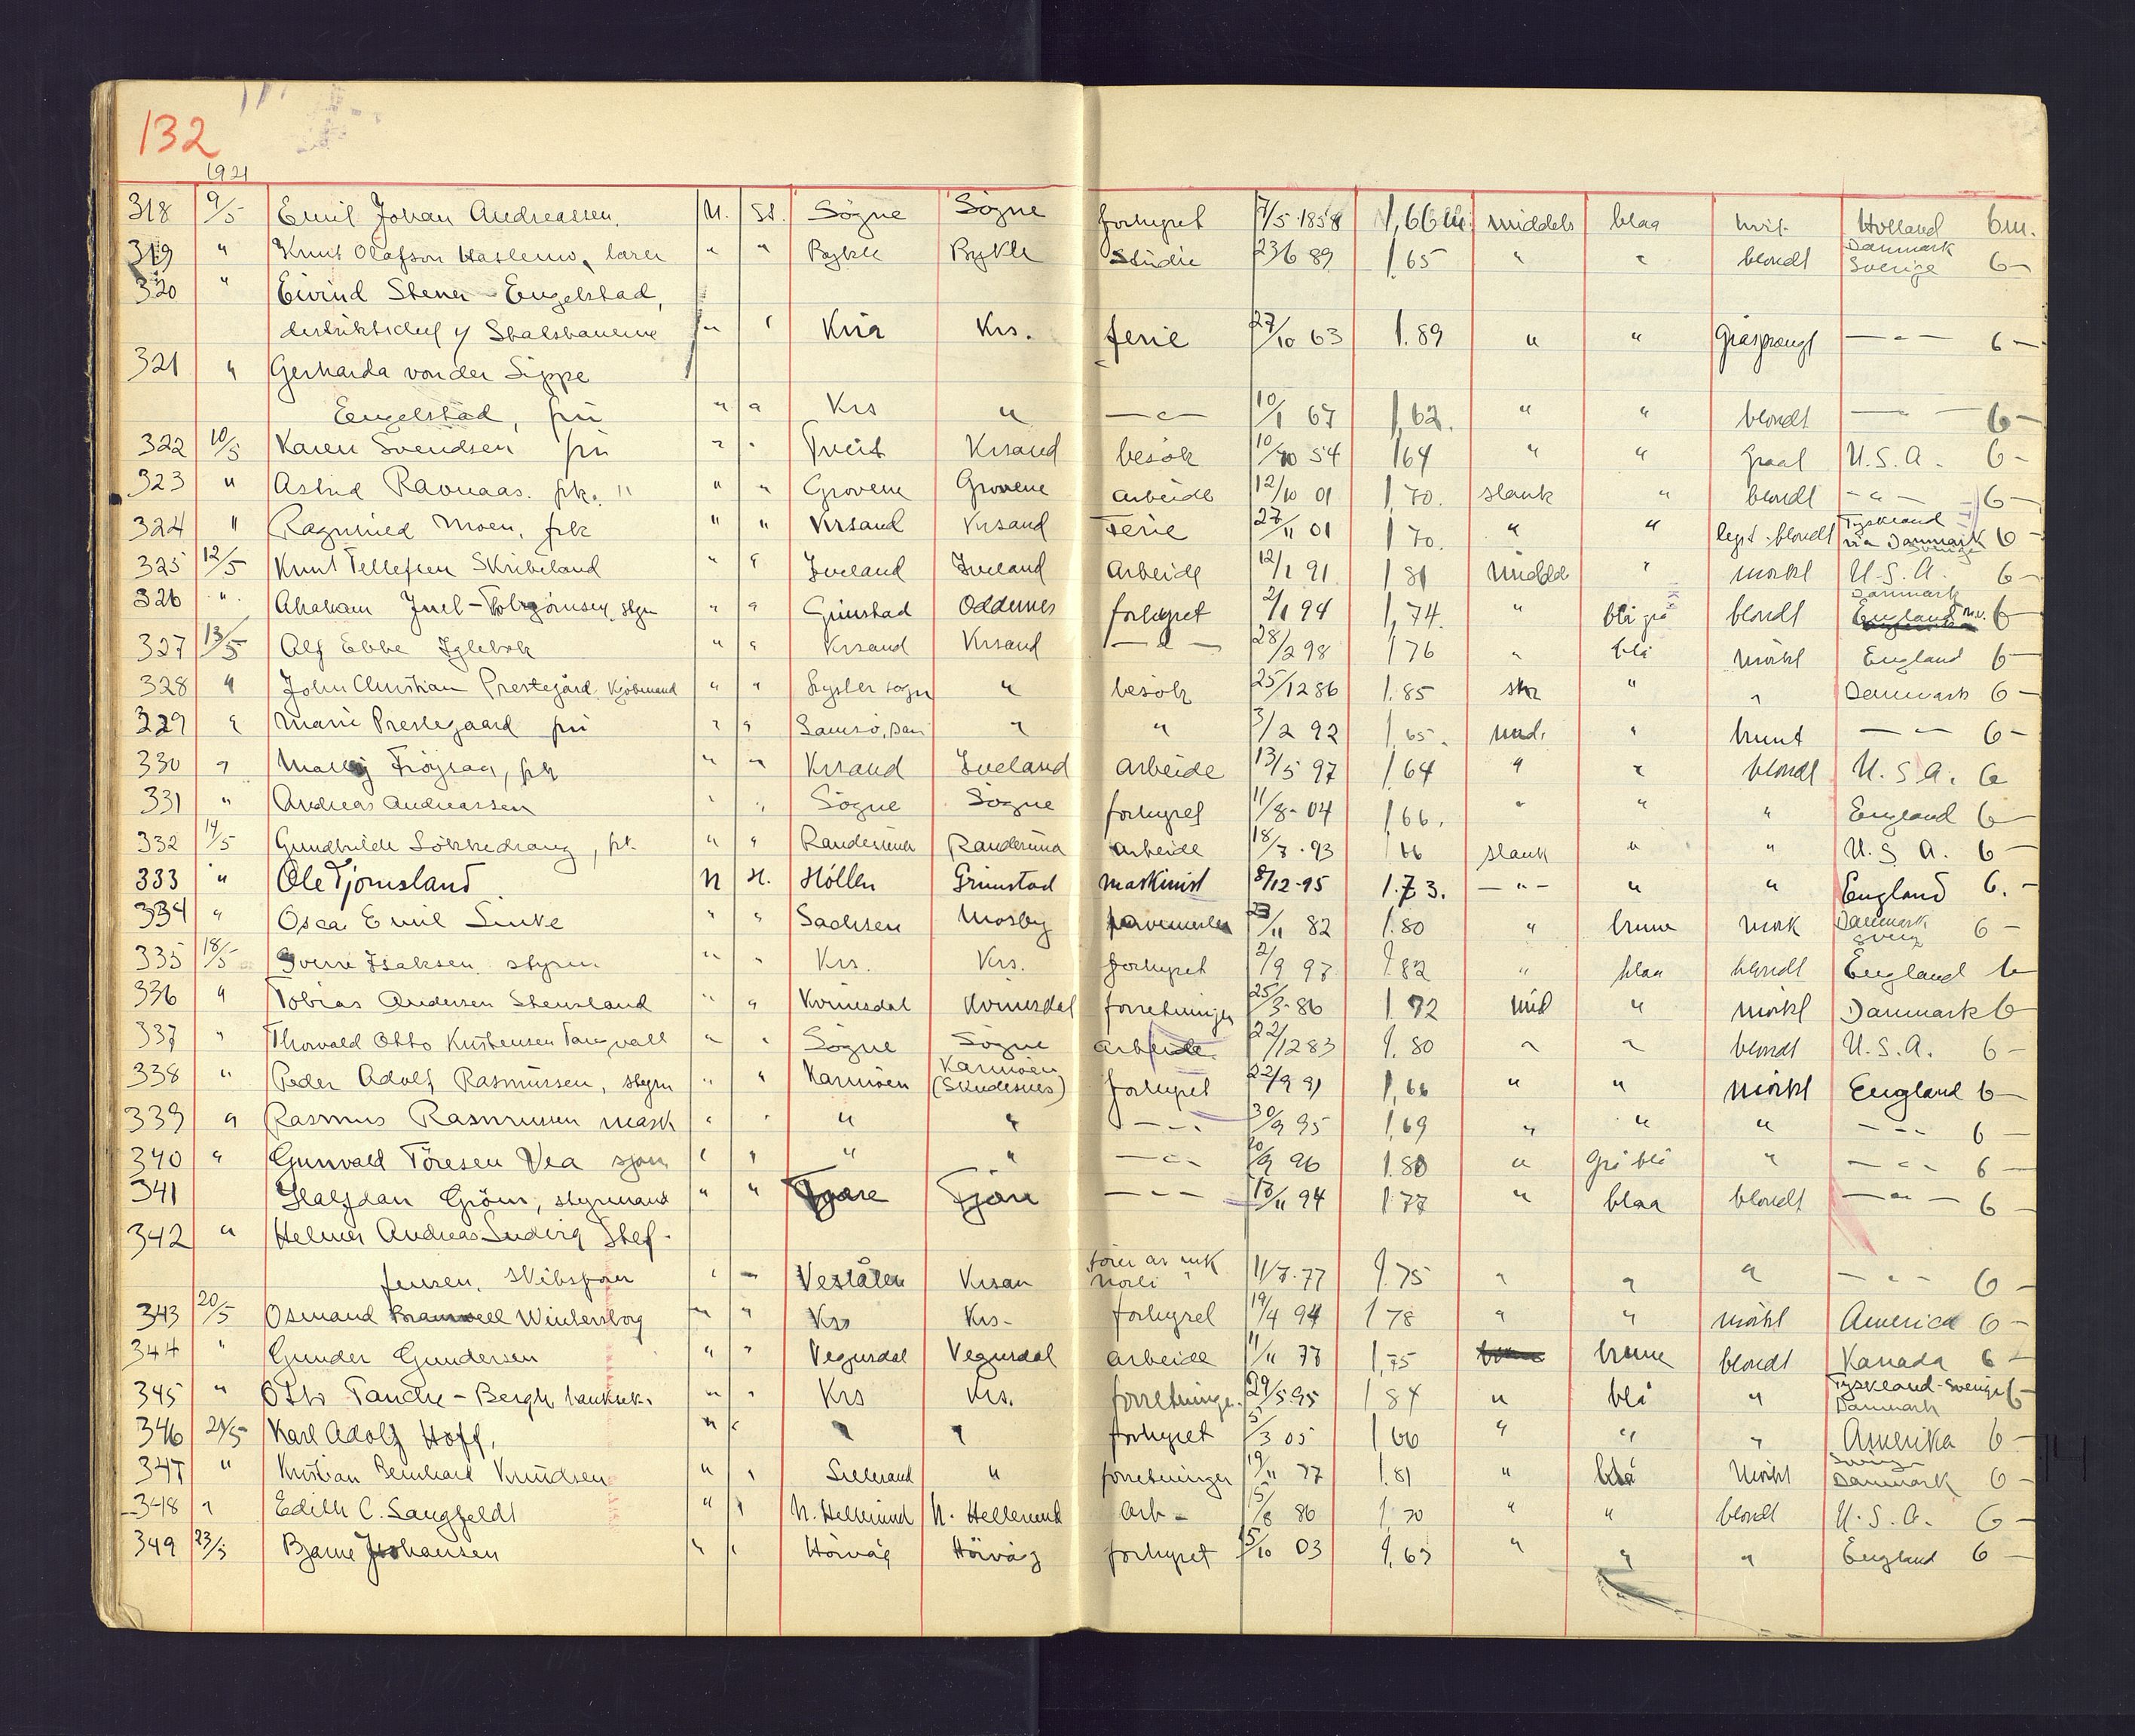 132
1921
318 9/5 Emil Johan Andreassen. N. St. Søgne Søgne forhyret 7/5-1858 1,66 m. middels blaa hvit. Holland 6 m.
319 " Knut Olafson Haslemo, lærer " " Bykle Bykle Studie 23/6 89 1,65 " " blondt Danmark Sverige 6 —
320 " Eivind Stener Engelstad,
distriktschef v/ Statsbanerne " " Kria Krs. ferie 27/10 63 1.89 " " gråsprengt — " — 6 —
321 " Gerharda von der Lippe
Engelstad, frü " " Krs " — " — 10/1 67 1,62. " " blondt — " — 6 —
322 10/5 Karen Svendsen frü " " Tveit Krsand besøk 10/10 54 1 64 " " graat U.S.A. 6 —
323 " Astrid Ravnaas. frk. " " " Grovene Grovene arbeide 12/10 01 1,70. slank " blondt — " — 6 —
324 " Ragnhild Moen, frk " " Krsand Krsand Ferie 27/11 01 1 70. " " lyst-blondt Tyskland via Danmark Sverige 6 —
325 12/5 Knut Tellefsen Skribeland " " Iveland Iveland Arbeide 12/1 91 1 81 middels " mörkt U.S.A. 6 —
326 " Abraham Juel- styrm " " Grimstad Oddernes forhyret 2/1 94 1,74. " blå grå blondt Danmark England 6
327 13/5 Alf Ebbe Iglebæk " " Krsand Krsand — " — 28/2 98 1 76 " blå mörkt England 6 —
328 " John Christian Prestegård. Kjøbmand " " sogn " besök 25/12 86 1.85 " " Danmark 6 —
329 " Marie Prestegaard frü " " Samsö, Dan " " 3/2 92 1,65. mid. " brunt — — 6 —
330 " Fröysaa, frk " " Krsand Iveland Arbeide 13/5 97 1.64 " " blondt U.S.A. 6
331 " Andreas Andreassen " " Søgne Søgne forhyret 11/8-04 1 66. " " " England 6 —
332 14/5 Gundhilde , frk. " " Randesund Randesund Arbeide 18/7 -93 1 66 slank " " U.S.A. 6 —
333 " Ole Tjomsland N St. Höllen Grimstad maskinist 8/12-95 1.73. — " — " " England 6. —
334 " Oscar Emil Linke " " Sachsen Mosby 23/11 82 1.80 " brune mörk Danmark Sverig 6 —
335 18/5 Sverre Isaksen styrm. " " Krs. Krs. forhyret 2/9 97 1.82 " blaa blondt England 6
336 " Tobias Andersen Stensland " " Kvinesdal Kvinesdal forretninger 25/3-86 1 72 mid " mörkt Danmark 6 —
337 " Thorvald Otto Kristensen Tangvall " " Søgne Søgne Arbeide 22/12 83 1.80 " " blondt U.S.A. 6 —
338 " Peder Adolf Rasmussen, styrm " " Karmöen Karmöen (Skudesnes) forhyret 22/9 91 1,66 " " mörkt England 6 —
339 " Rasmus Rasmussen mask " " " " — " — 30/9 95 1,69 " " " — " — 6 —
340 " Gunvald Töresen Vea sjøm " " " " — " — 20/9 96 1.80 " Grå blå " — " — 6 —
341 " Halfdan Gröm, styrmand " " Tjøre Tjöre — " — 18/11 94 1 77 " blaa blondt — " — 6 —
342 " Helmer Andreas Ludvig Stef-
fensen. Skibsfører " — Veståsen Krsan förer av mk Norli " 11/7-77 1.75 " " " — " — 6 —
343 20/5 Osmand Bramwell Wintersborg " " Krs Krs- forhyret 19/4 94 1 78 " " mörkt America 6 —
344 " Gunder Gundersen " " Vegusdal Vegusdal Arbeide 11/11 77 1,75 brune blondt Kanada 6 —
345 " Otto Tanche-Bergh banksek. " " Krs Krs. forretninger. 29/5 95 1 84 " blå " Tyskland-Sverige Danmark 6 —
346 21/5 Karl Adolf Hoff, " " " " forhyret 5/3 05 1 66 " " " Amerika 6 —
347 " Kristian Bernhard Knudsen " " Lillesand " forretninger 19/11 77 1.81 " blå Mörkt Sverige Danmark 6 —
348 " Edith C. Langfeldt " " N. Hellesund N. Hellesund Arb - 15/8 80 1,70 " " blondt U.S.A. 6 —
349 23/5 Bjarne Johansen " " Hövåg Hövåg forhyret 15/10 03 1,65 " " " England 6 —